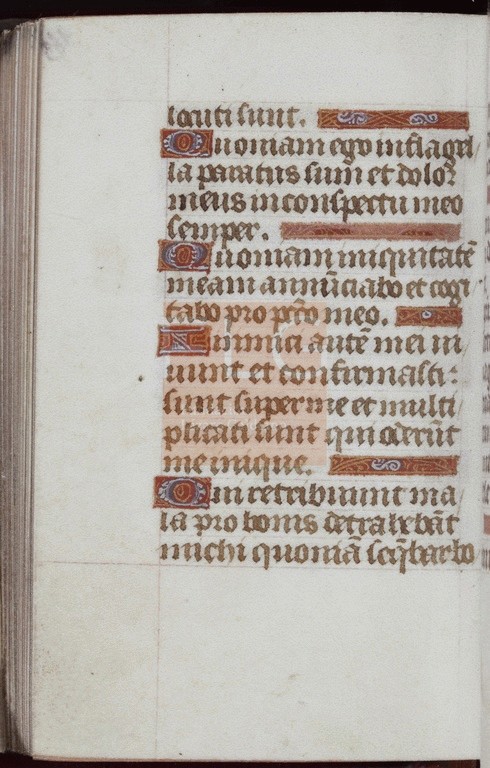 locuti sunt.
Quoniam ego in flagel/
la paratus sum et dolor
meus in conspectu meo
semper.
Quoniam iniquitatē
meam annūciabo et cogi/
tabo pro pc̄to meo.
Inimici autē mei ui
uunt et confirmati:
sunt super me et multi/
plicati sunt qui oderūt
me inique.
Qui retribuunt ma/
la pro bonis detrahebāt
michi quoniā seq̄barbo